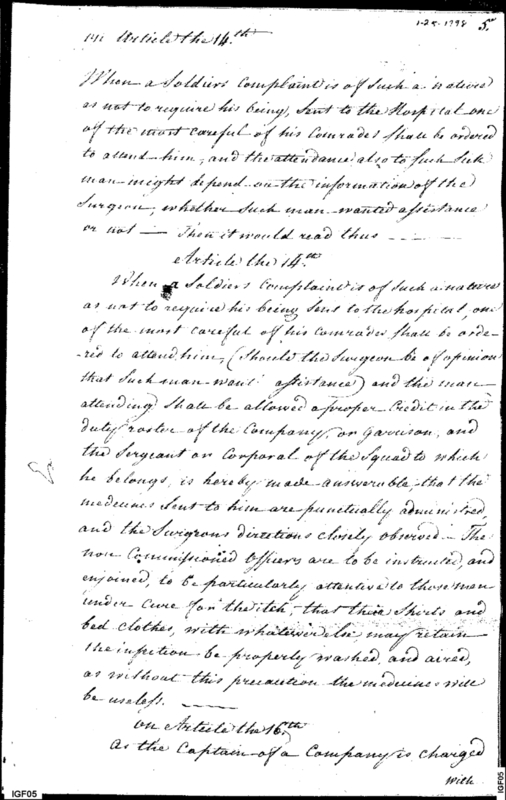 1-25-1798 5.
on Article the 14.th
When a Soldiers Complaint is of Such a nature
as not to require his being, Sent to the Hospital one
of the most careful of his Comrades Shall be ordered
to attend him, and the attendance also to Such Sick
man might depend on the information of the
Surgeon, whether Such man wanted assistance
or not — Then it would read thus
Article the 14.th
When a Soldiers Complaint is of Such a nature
as not to require his being Sent to the hospital, one
of the most careful of his Comrades Shall be orde-
-red to attend him, (Should the Surgeon be of opinion
that Such man want assistance) and the man
attending Shall be allowed a proper Credit in the
duty roster of the Company, or Garrison, and
the Sergeant or Corporal of the Squad to which
he belongs, is hereby made answerable, that the
medicines Sent to him are punctually administred,
and the Surgeons directions closely observed — The
non Commissioned Officers are to be instructed, and
enjoined, to be particularly attentive to those men
under cure for the itch, that their Shirts and
bed clothes, with whatever else may retain
the infection be properly washed, and aired,
as without this precaution the medicines will
be useless.
on Article the 16th
As the Captain of a Company is charged
with
IGF05
IGF05